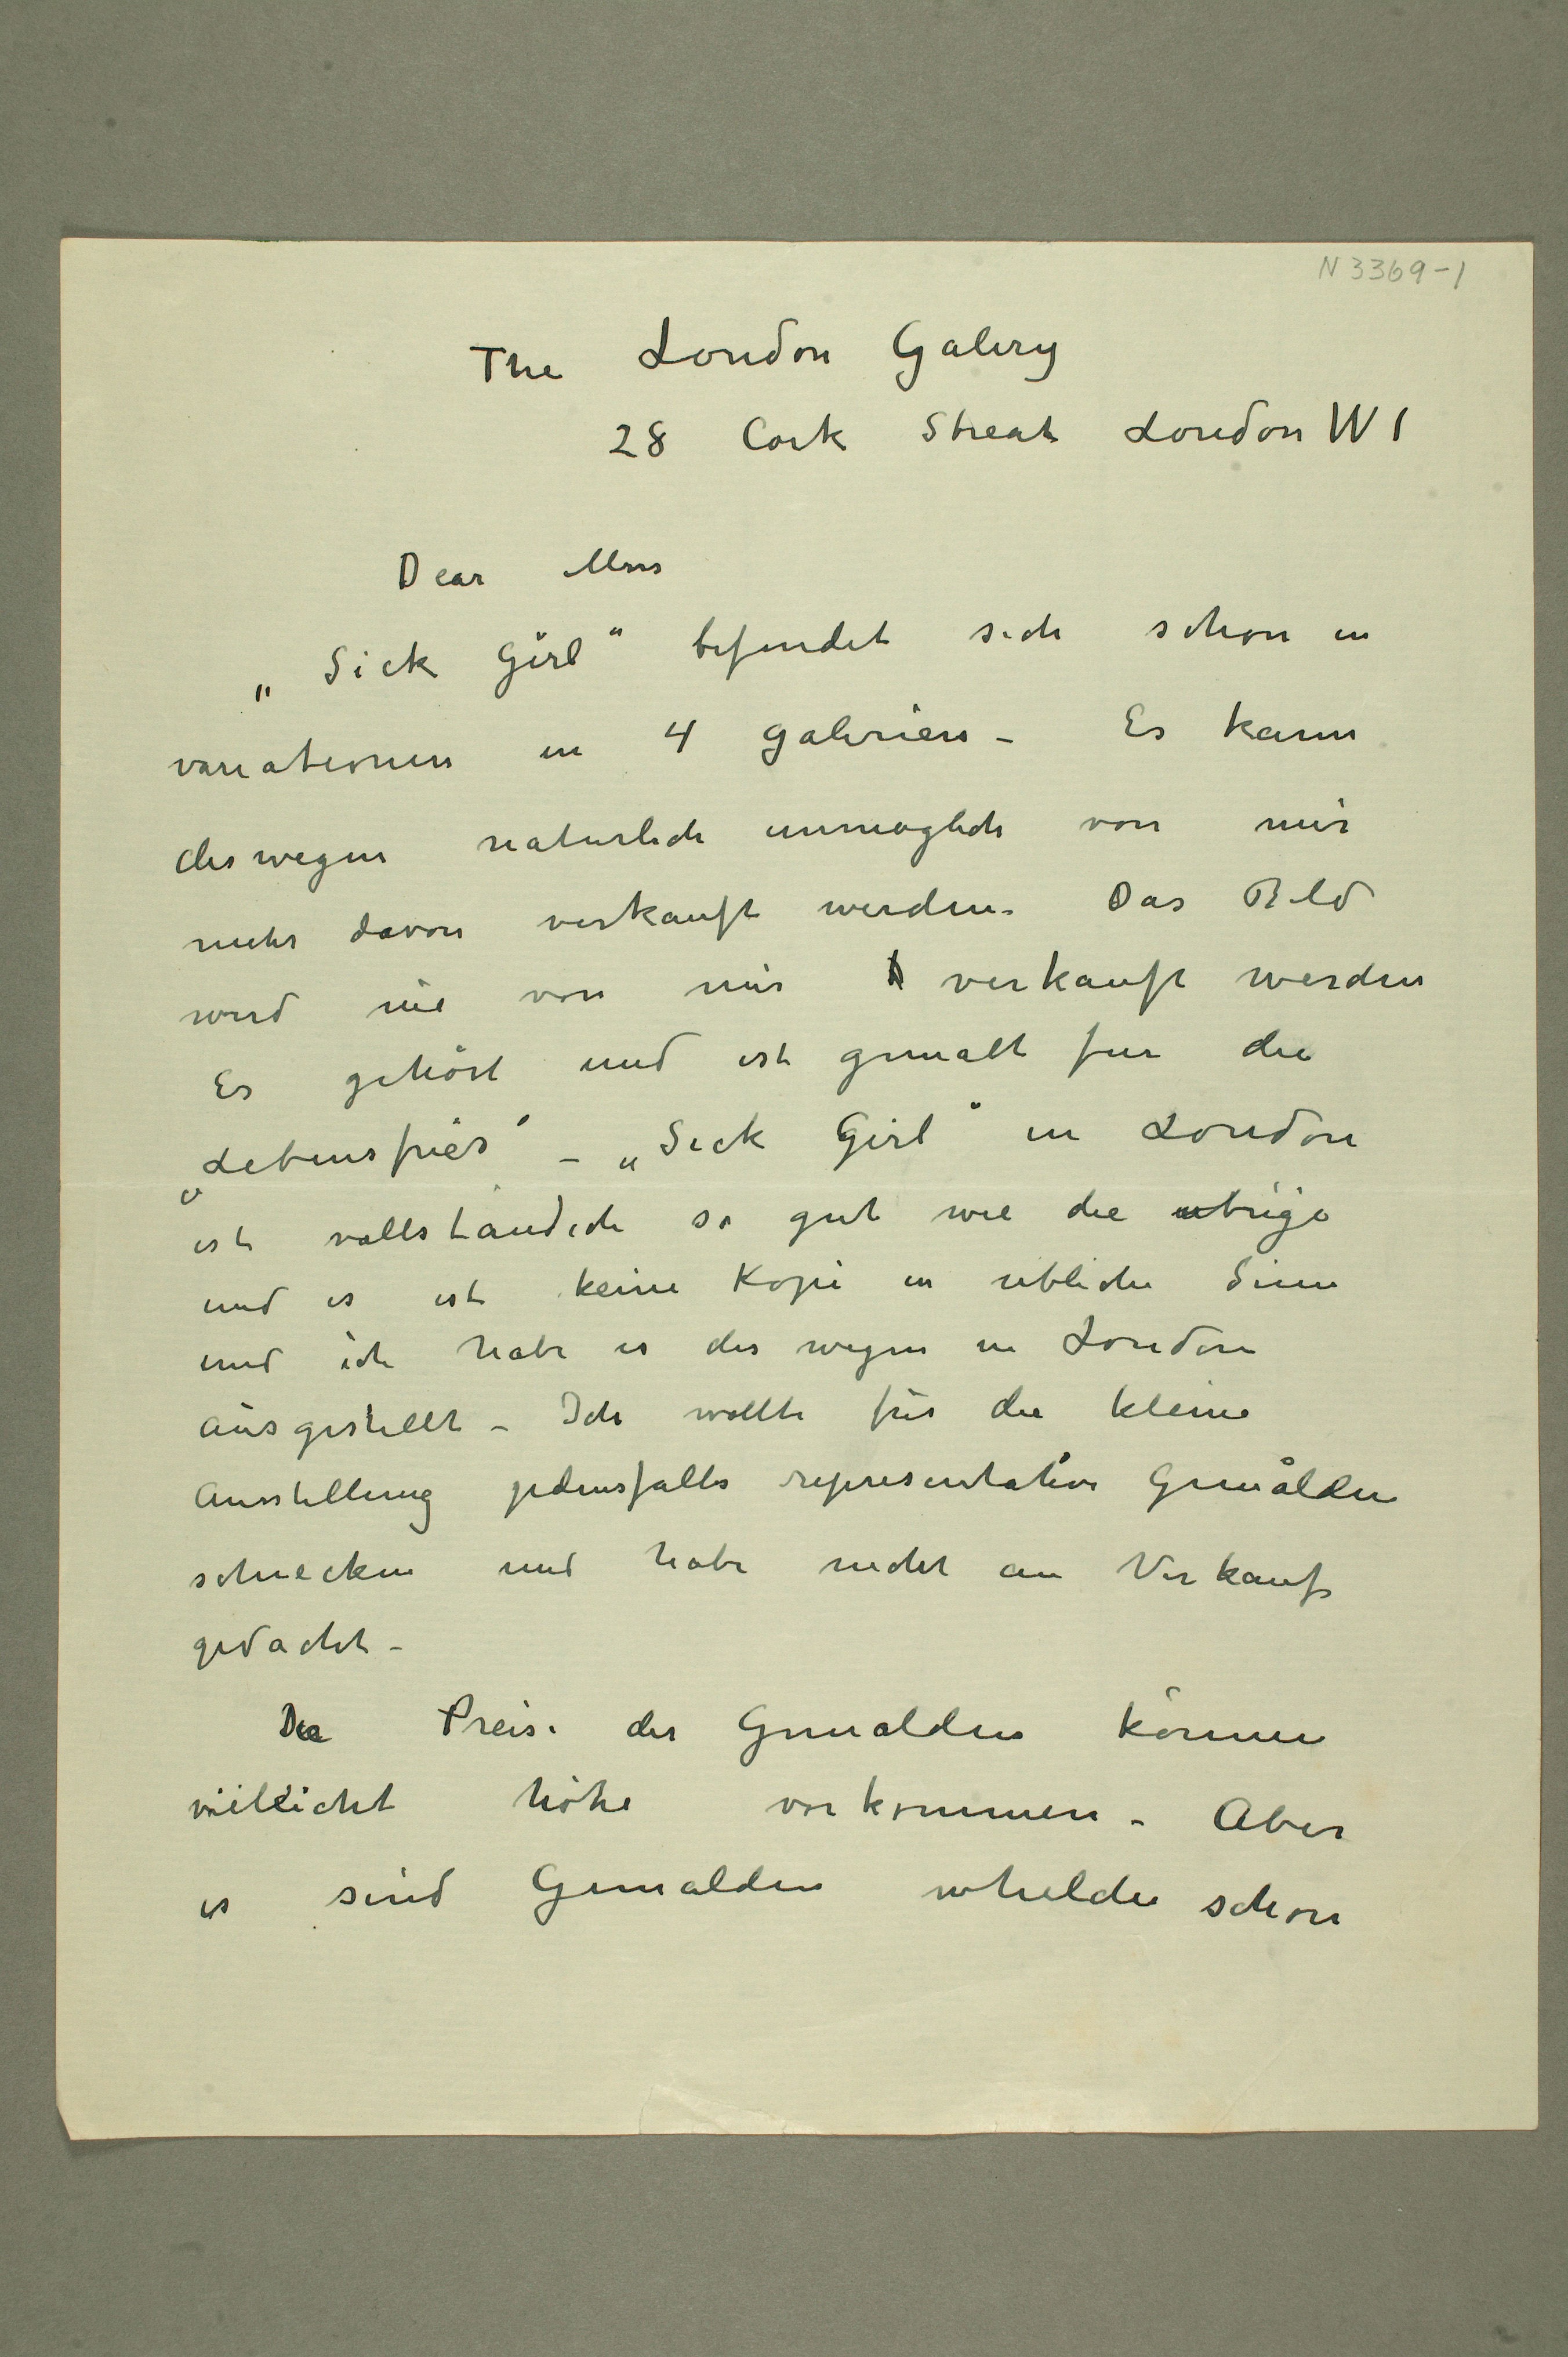 N 3369-1
The London Galery
28 Cork Streat London W1
Dear Mrs
„Sick Girl“ befindet sich schon in
variationen in 4 galerien – Es kann
deswegen naturlich unmoglich von mir
mehr davon verkauft werden. Das Bild
wird nie von mir verkauft werden
Es gehört und ist gemalt fur die
„Lebensfries“ – „Sick Girl“ in London
ist vollständich so gut wie die ubrige
und es ist keine Kopi in ubliche Sinne
und ich habe es des wegen in London
ausgestellt – Ich wollte für die kleine
Ausstellung jedensfalls representative Gemålden
schiecken und habe nicht an Verkauf
gedacht –
Die Preise der Gemalden können
vielleicht höhe vorkommen – Aber
es sind Gemalden whelche schon